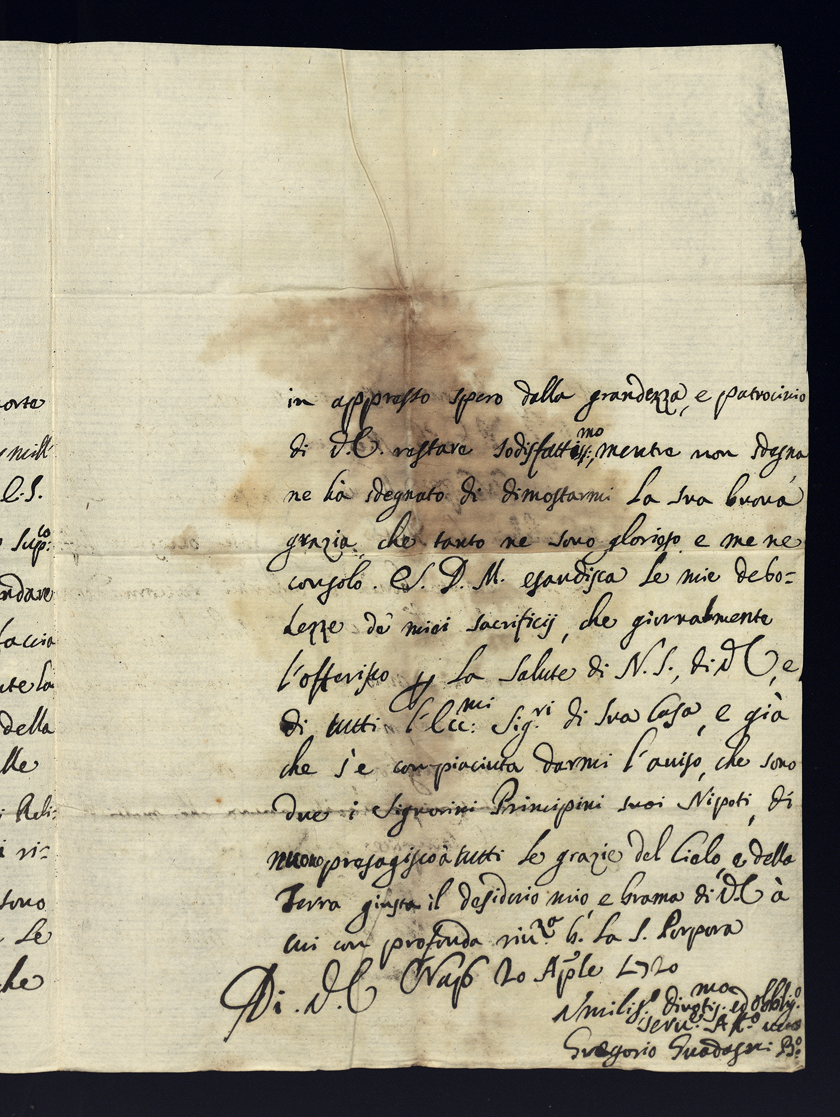 orte
mill
E.S.
sup:co
ndare
faccia
nte la
della
lle
Reli-
i ri-
sono
Le
che
in appresso spero dalla grandezza, e patrocinio
di V.E. restare sodisfattiss:mo, mentre non sdegna
ne hà sdegnato di dimostarmi la sua buona
grazia, che tanto ne sono glorioso e me ne
consolo. E S. D. M. esaudisca le mie debo-
lezze de miei sacrificij, che giornalmente
l'offerisco p la salute di N. S., di V.E, e
di tutti l'Ecc:mi Sig:ri di sua Casa, e già
che s'è compiaciuta darmi l'auiso, che sono
due i Signorini Principini suoi Nipoti, di
nuouo presagisco à tutti le grazie del Cielo, e della
Terra giusta il desiderio mio e brama di V.E à
cui con profonda riu:za b. la S. Porpora
Di. V.E Nap 20 Aple 1720
Vmiliss. diuotis:mo ed obblig:o
seru:
Gregorio Guadagni